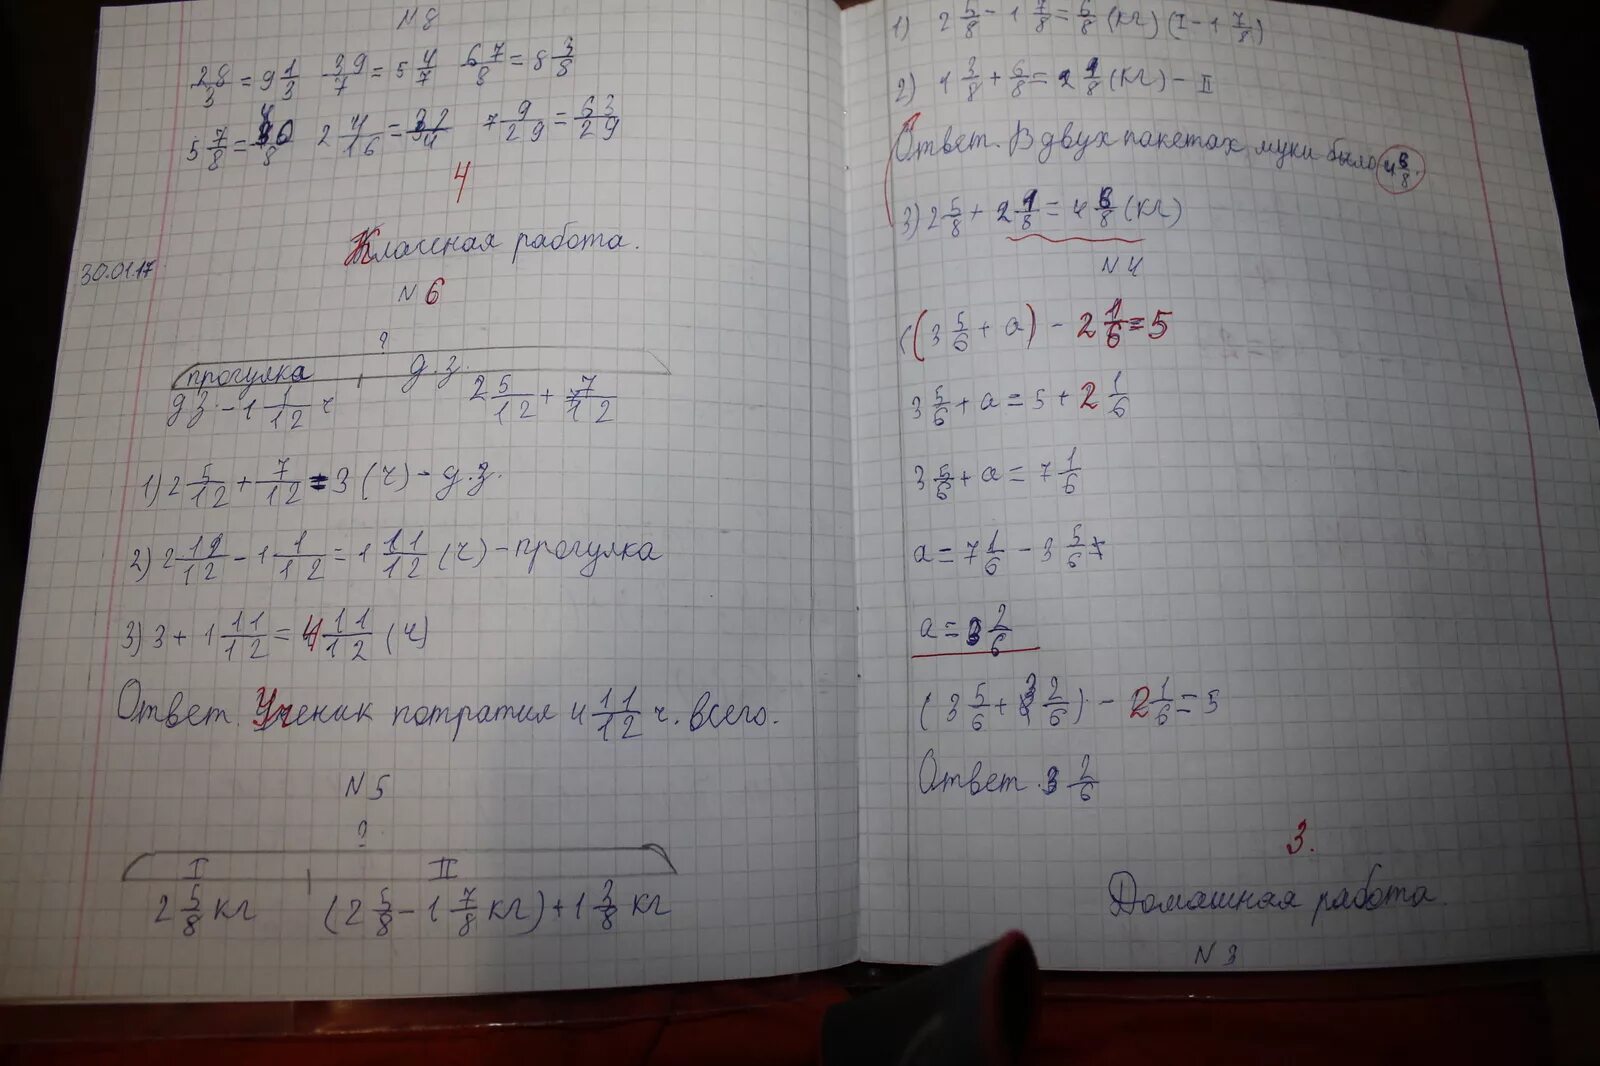 N 8
28/3 = 9 1/3  39/7 = 5 4/7  67/8 = 8 3/8
5 7/8 =  2 4/16 =  7 9/29 = 63/29
4
30.01.17
Классная работа.
N 6
?
прогулка  д.з.
д.з. - 1 1/12 ч  2 5/12 + 7/12
1) 2 5/12 + 7/12 = 3 (ч) - д.з.
2) 2 12/12 - 1 1/12 = 1 11/12 (ч) - прогулка
3) 3 + 1 11/12 = 4 11/12 (ч)
Ответ. Ученик потратил 4 11/12 ч. всего.
N 5
?
I  II
2 5/8 кг  (2 5/8 - 1 7/8 кг) + 1 3/8 кг
1) 2 5/8 - 1 7/8 = 6/8 (кг) (I - 1 7/8)
2) 1 3/8 + 6/8 = 2 1/8 (кг) - II
Ответ. В двух пакетах муки было 4 6/8.
3) 2 5/8 + 2 1/8 = 4 6/8 (кг)
N 4
((3 5/6 + a) - 2 1/6 = 5
3 5/6 + a = 5 + 2 1/6
3 5/6 + a = 7 1/6
a = 7 1/6 - 3 5/6
a = 3 2/6
(3 5/6 + 3 2/6) - 2 1/6 = 5
Ответ. 3 2/6
3.
Домашная работа.
N 3